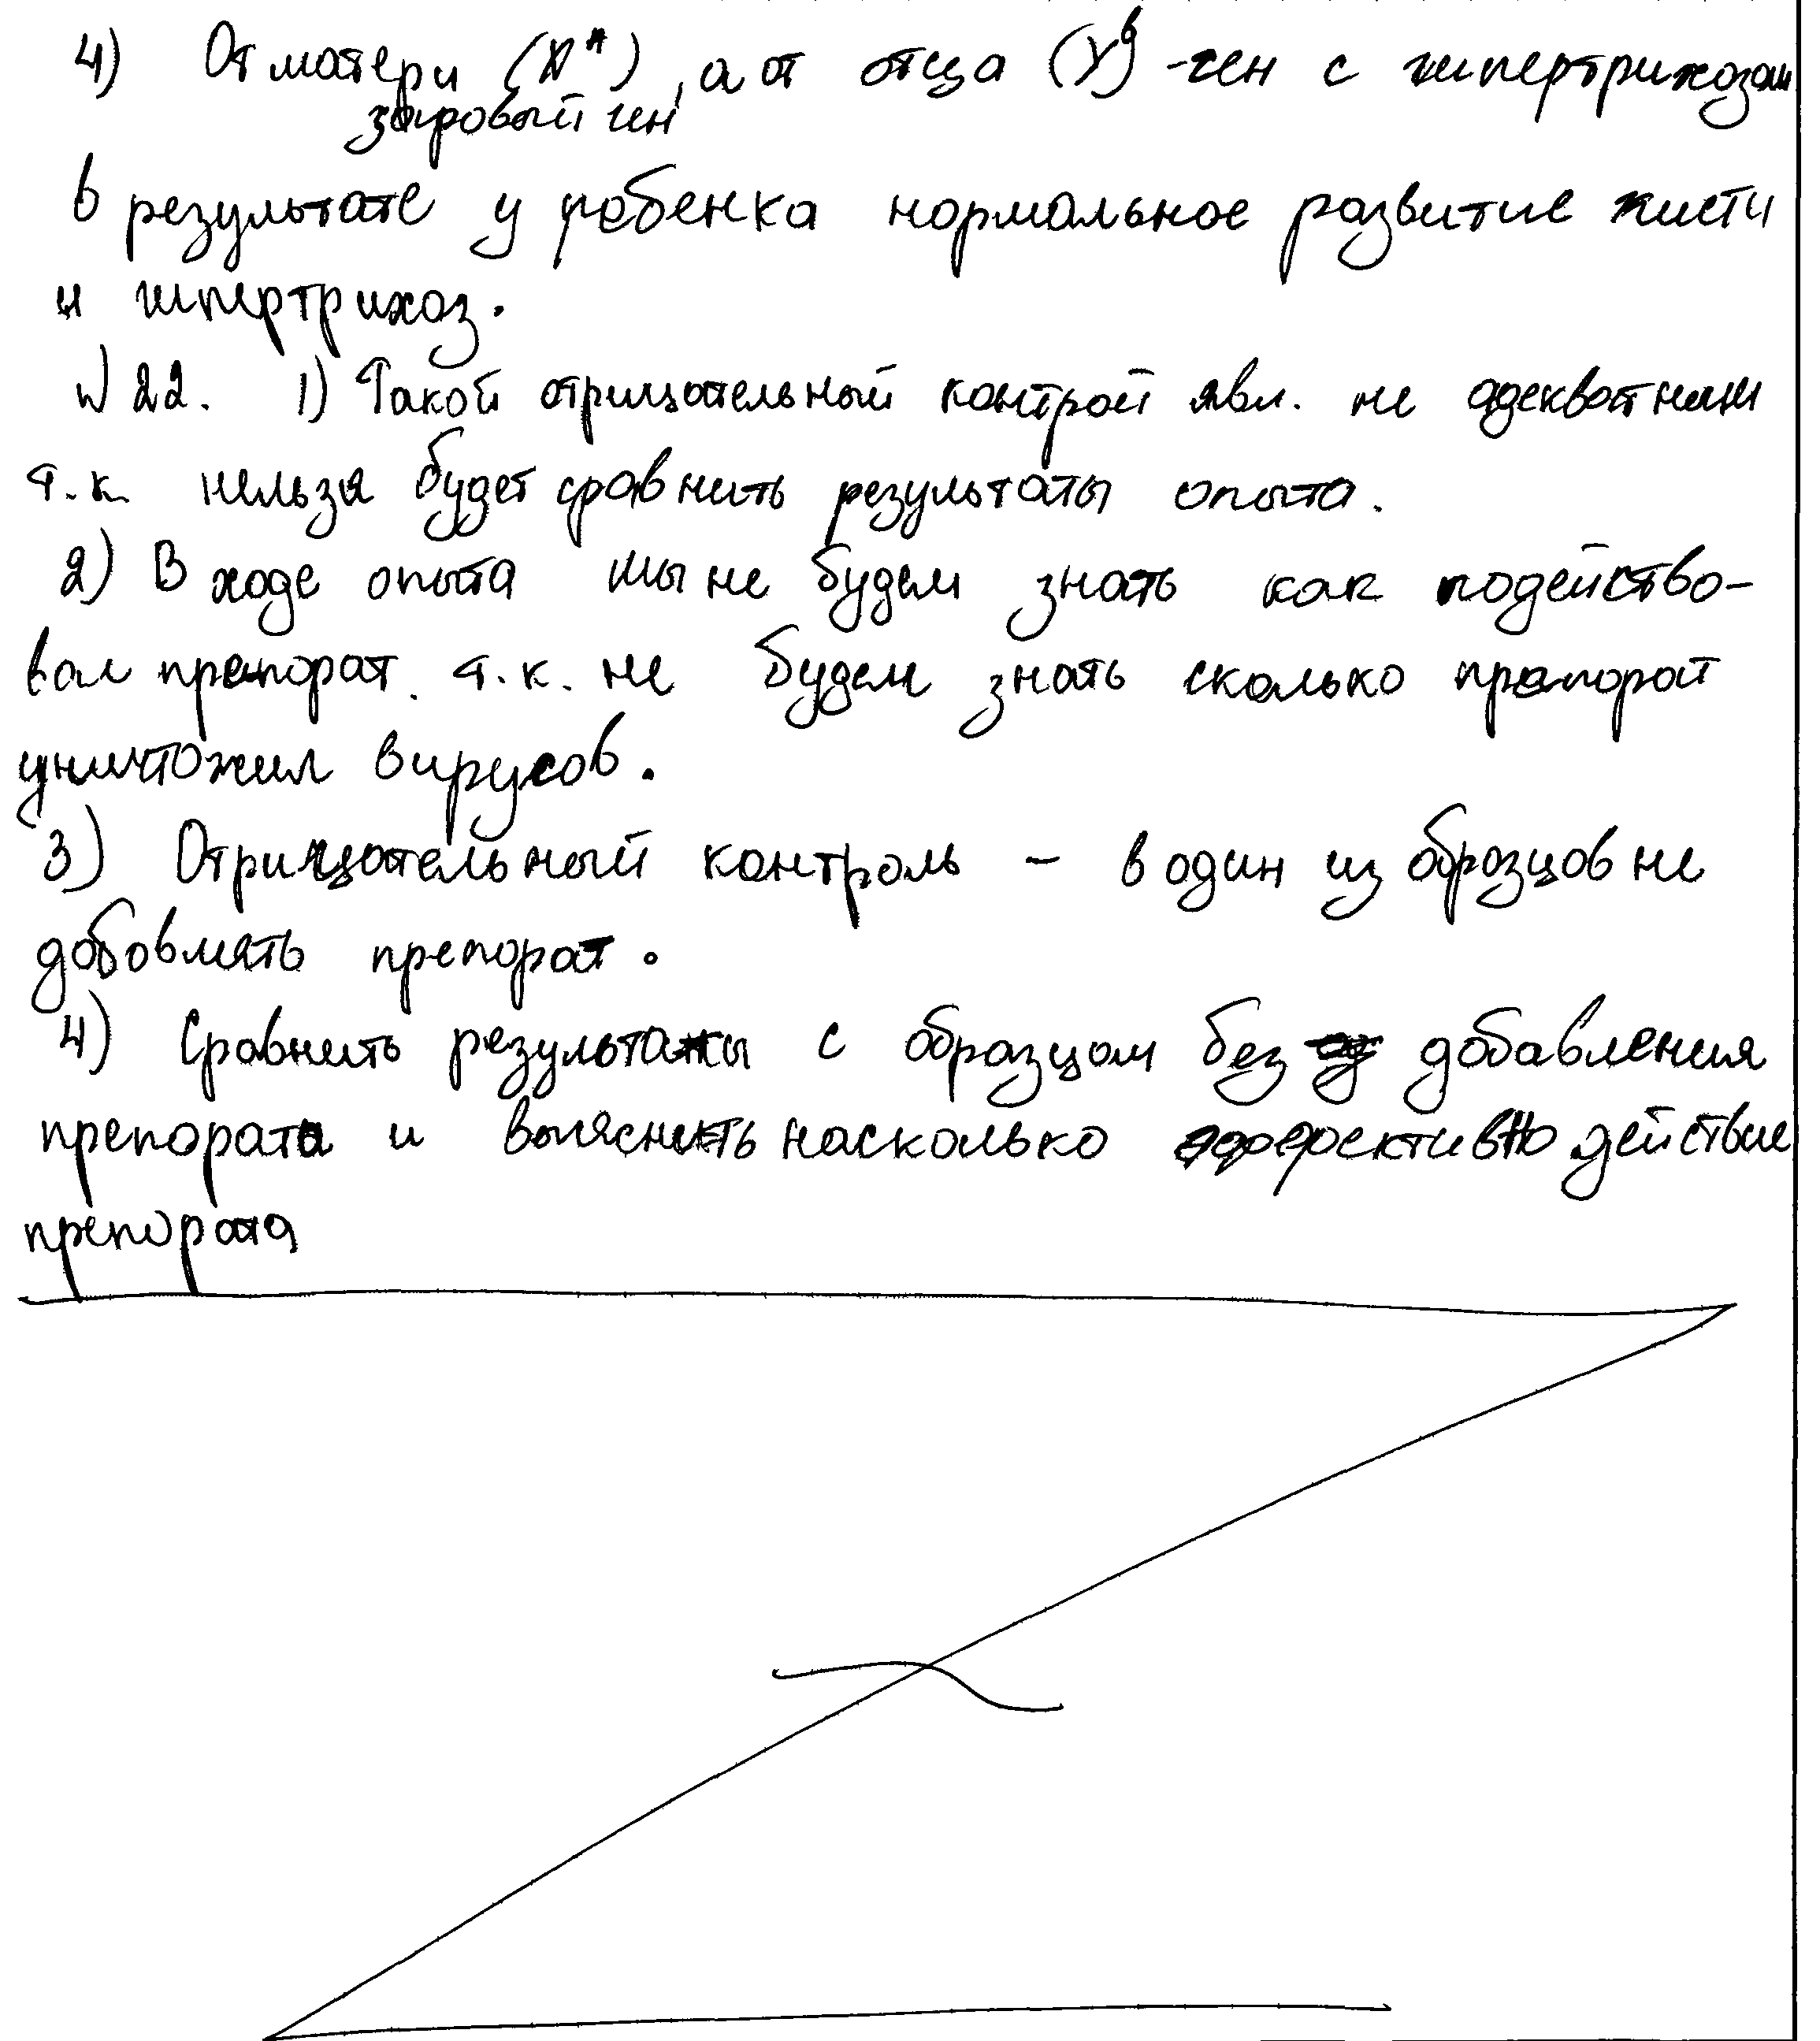 4) От матери (Xᴬ), а от отца (Yᵇ) - ген с гипертрихозом
здоровый ген
в результате у ребенка нормальное развитие кисти
и гипертрихоз.
№ 22. 1) Такой отрицательный контрой явл. не адекватным
т.к. нельзя будет сравнить результаты опыта.
2) В ходе опыта мы не будем знать как подейство-
вал препорат. т.к. не будем знать сколько препорат
уничтожил вирусов.
3) Отрицательный контроль - в один из образцов не
добовлять препорат.
4) Сравнить результаты с образцом без добавления
препората и выяснить насколько эффективно действие
препората